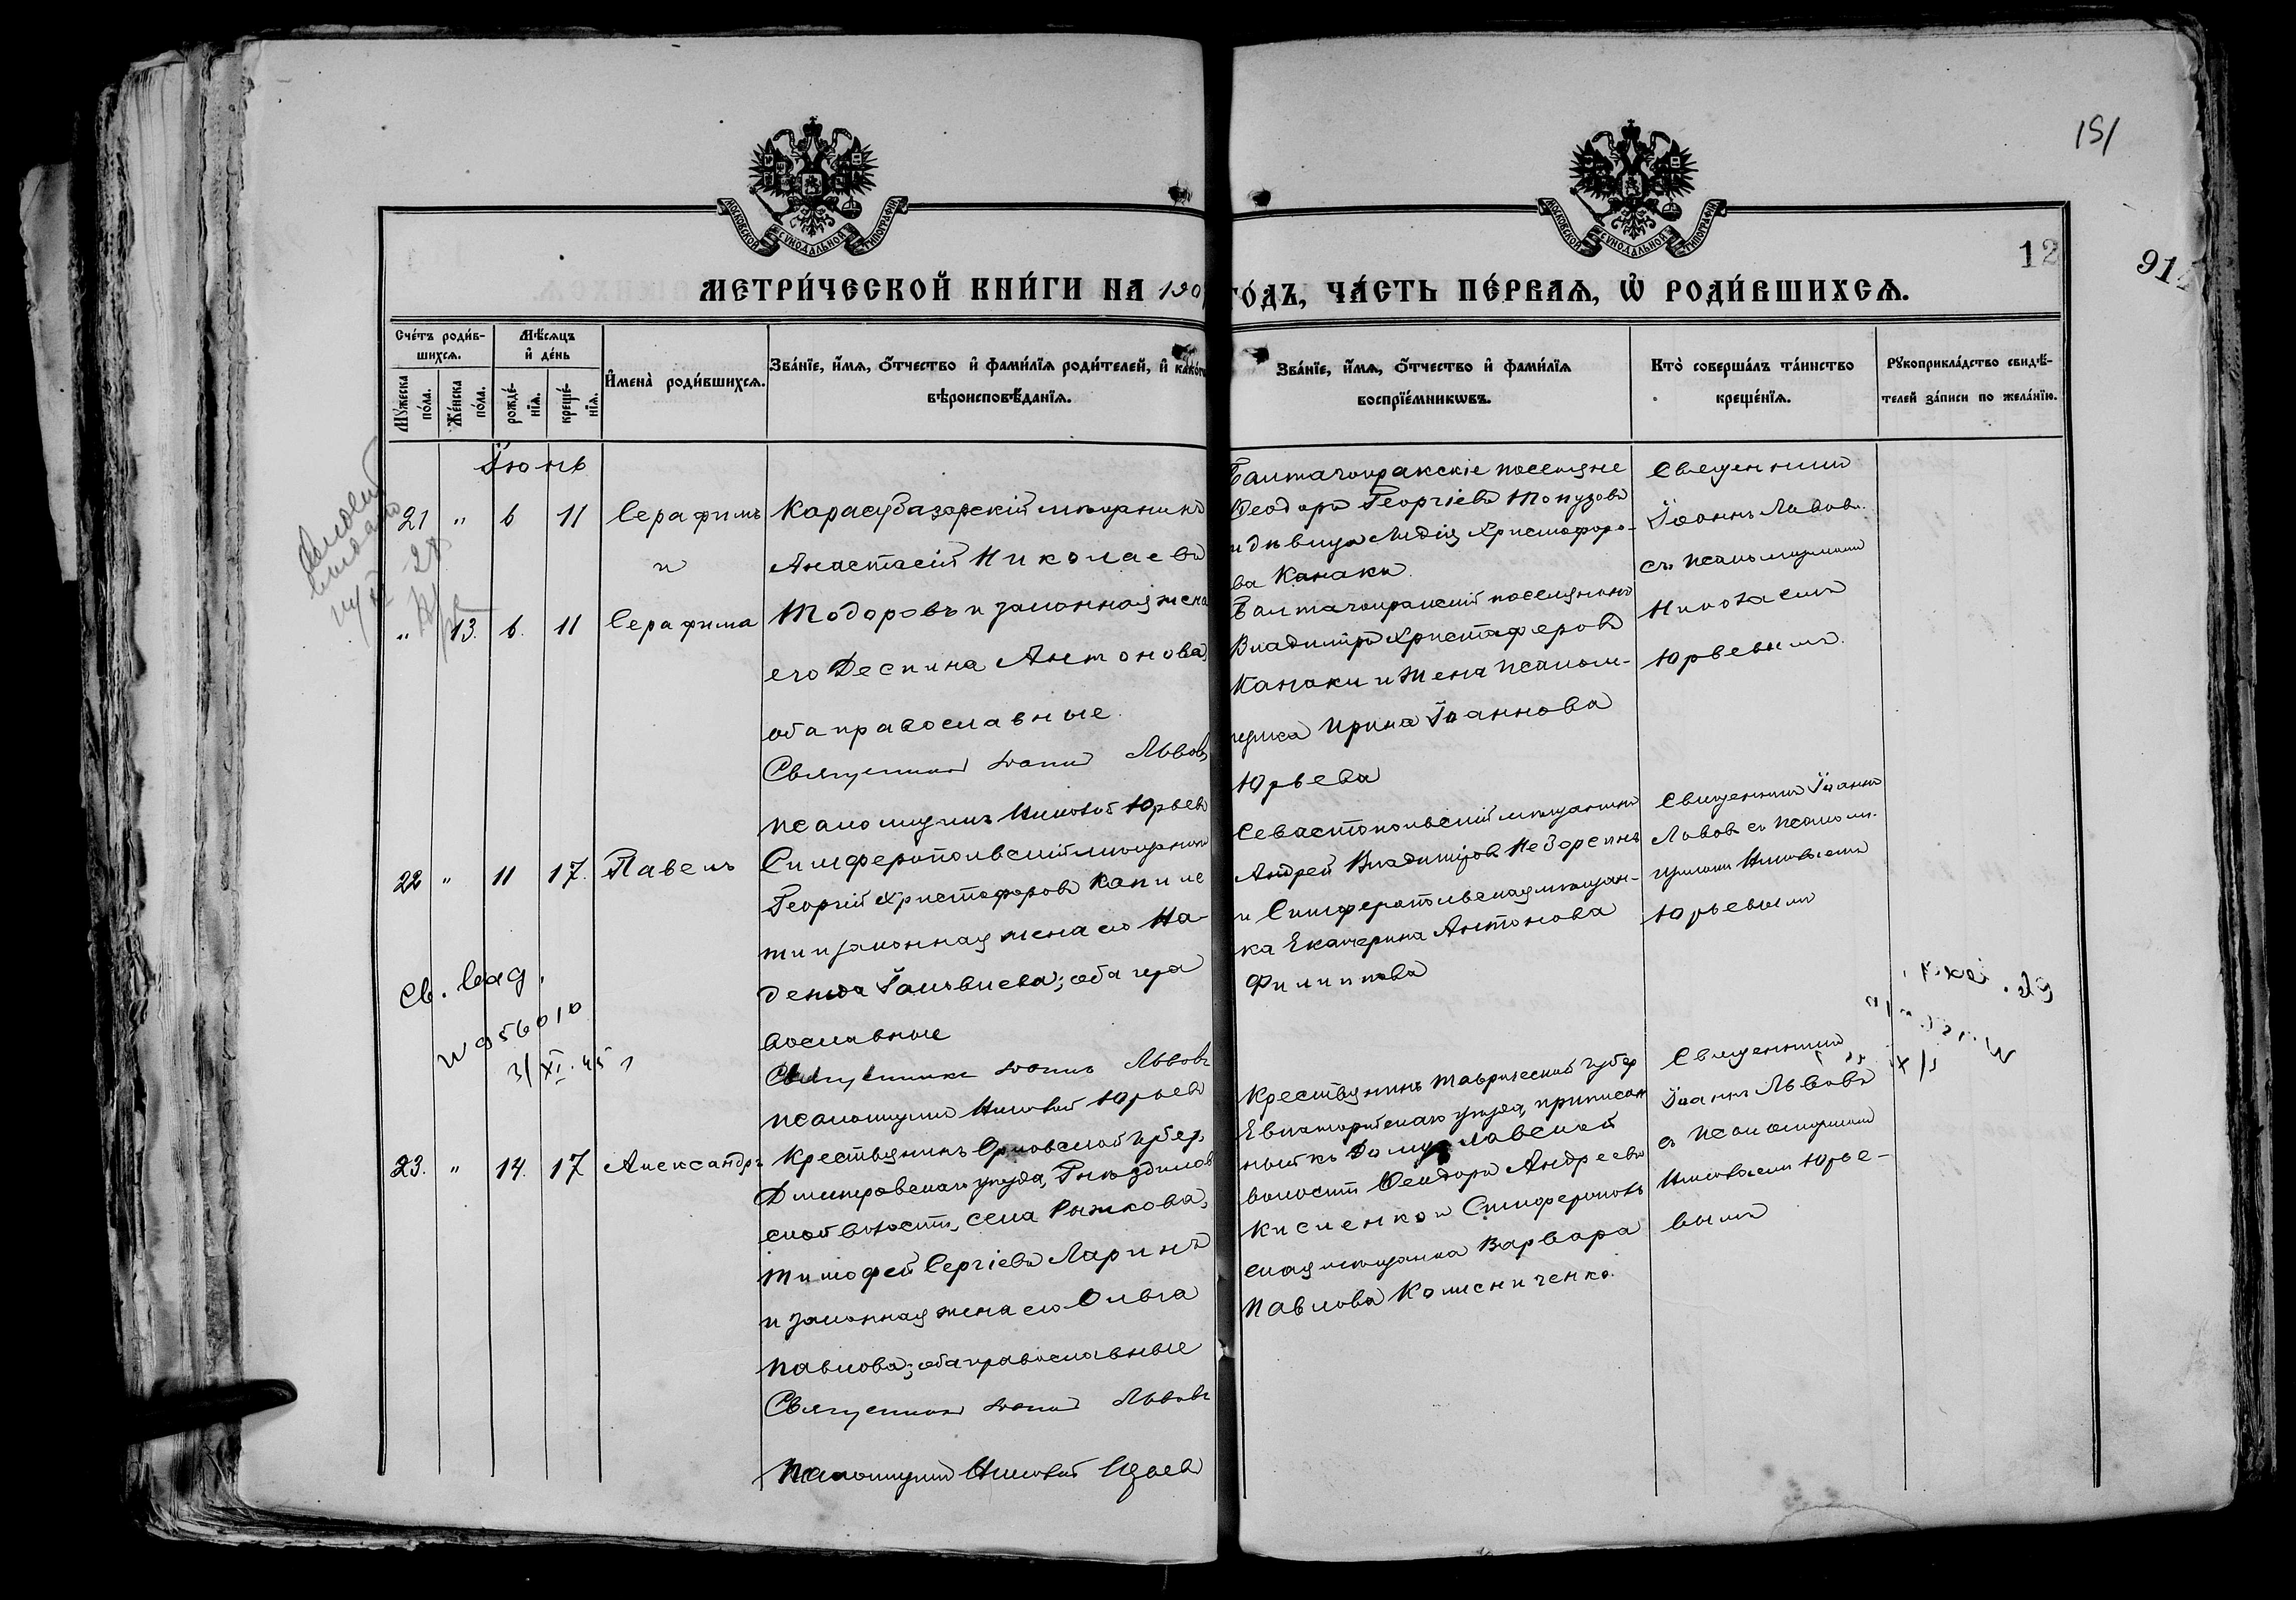 151
12
914
МОСКОВСКОЙ СѴНОДАЛЬНОЙ ТИПОГРАФІИ
МОСКОВСКОЙ СѴНОДАЛЬНОЙ ТИПОГРАФІИ
МЕТРИ́ЧЕСКОЙ КНИ́ГИ НА 190 ГО́ДЪ, ЧА́СТЬ ПЕ́РВАѦ, Ѡ҆ РОДИ́ВШИХСѦ.
Сче́тъ роди́в-
шихсѧ.
Мꙋ́жеска по́ла.
Же́нска по́ла.
Мѣ́сѧцъ
и҆ де́нь
рожде́-
нїѧ.
креще́-
нїѧ.
И҆мена̀ роди́вшихсѧ.
Зва́нїе, и҆́мѧ, ѻ҆́тчество и҆ фами́лїѧ роди́телей, и҆ како́гѡ
вѣроисповѣ́данїѧ.
Зва́нїе, и҆́мѧ, ѻ҆́тчество и҆ фами́лїѧ
воспрїе́мникѡвъ.
Кто̀ соверша́лъ та́инство
креще́нїѧ.
Рꙋкоприкла́дство свидѣ́-
телей за́писи по жела́нїю.
Іюнь
21 " 6 11 Серафимъ
и
" 13. 6. 11 Серафима
Карасубазарскій мѣщанинъ
Анастасій Николаевъ
Тодоровъ и законная жена
его Деспина Антонова
оба православные.
Священникъ Іоаннъ Львовъ
псаломщикъ Николай Юрьевъ
Балтачокракскіе поселяне
Ѳеодоръ Георгіевъ Топузовъ
и дѣвица Лидія Христофоро-
ва Канаки.
Балтачокракскій поселянинъ
Владиміръ Христофоровъ
Канаки и жена псалом-
щика Ирина Іоаннова
Юрьева
Священникъ
Іоаннъ Львовъ
съ псаломщикомъ
Николаемъ
Юрьевымъ.
22 " 11 17. Павелъ
Симферопольскій мѣщанинъ
Георгій Христофоровъ
и законная жена его На-
дежда оба пра
вославные
Священникъ Іоаннъ Львовъ
псаломщикъ Николай Юрьевъ
Севастопольскій мѣщанинъ
Андрей Владиміровъ
и Симферопольская мѣщан-
ка Екатерина Антонова
Филиппова
Священникъ Іоаннъ
Львовъ съ псалом-
щикомъ Николаемъ
Юрьевымъ
Св.
N 956010
3/XI.45
23. " 14. 17 Александръ
Крестьянинъ Орловской губер.
Дмитровскаго уѣзда, Гнѣздилов
ской волости, села Рыжкова,
Тимофей Сергіевъ Ларинъ
и законная жена его Ольга
Павлова; оба православные
Священникъ Іоаннъ Львовъ
Псаломщикъ Николай Юрьевъ
Крестьянинъ Таврической губер
Евпаторійскаго уѣзда, приписан
ный къ
волости Ѳеодоръ Андреевъ
Кисленко и Симферополь
ская мѣщанка Варвара
Павлова Колесниченко.
Священникъ
Іоаннъ Львовъ
съ псаломщикомъ
Николаемъ Юрье-
вымъ